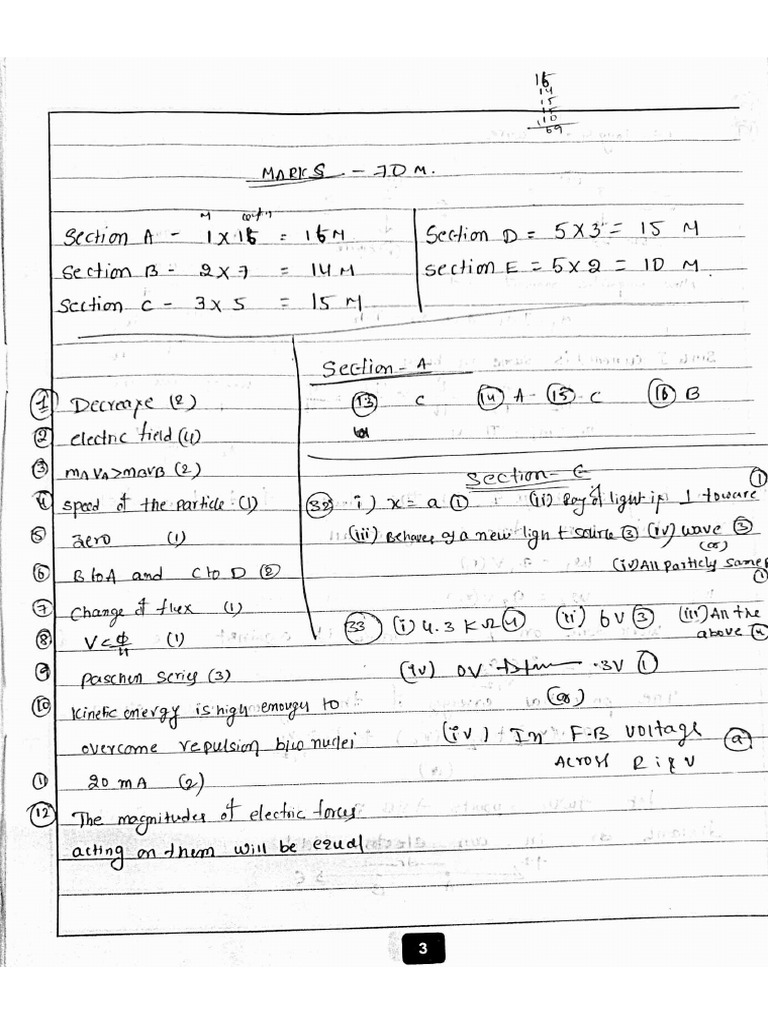 16
14
15
15
10
69
MARKS - 70 M.
M
Section A - 1 X 16 = 16 M
Section B - 2 X 7 = 14 M
Section C - 3 X 5 = 15 M
Section D = 5 X 3 = 15 M
Section E = 5 X 2 = 10 M.
① Decrease (2)
② electric field (4)
③ mAVA>mBVB (2)
④ speed of the particle (1)
⑤ zero (1)
⑥ B to A and C to D (2)
⑦ Change of flux (1)
⑧ V < Φ/4 (1)
⑨ Paschen Series (3)
⑩ Kinetic energy is high enough to
overcome repulsion b/w nuclei
⑪ 20 mA (2)
⑫ The magnitudes of electric forces
acting on them will be equal
Section - A
⑬ C ⑭ A ⑮ C ⑯ B
Section - E
㉜ i) x = a ① (ii) Ray of light is ⊥ toware ①
(iii) Behaves as a new light source ③ (iv) wave ③
(or)
(iv) All particly same
①
㉝ (i) 4.3 K Ω ④ (ii) 6V ③ (iii) All the
above ④
(iv) 0V 3V ①
(or)
(iv) In F.B voltage ⓐ
Across R is V
3